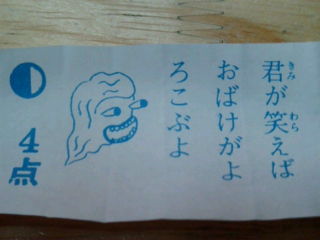 君が笑えば
おばけがよ
ろこぶよ
4点
きみ
わら